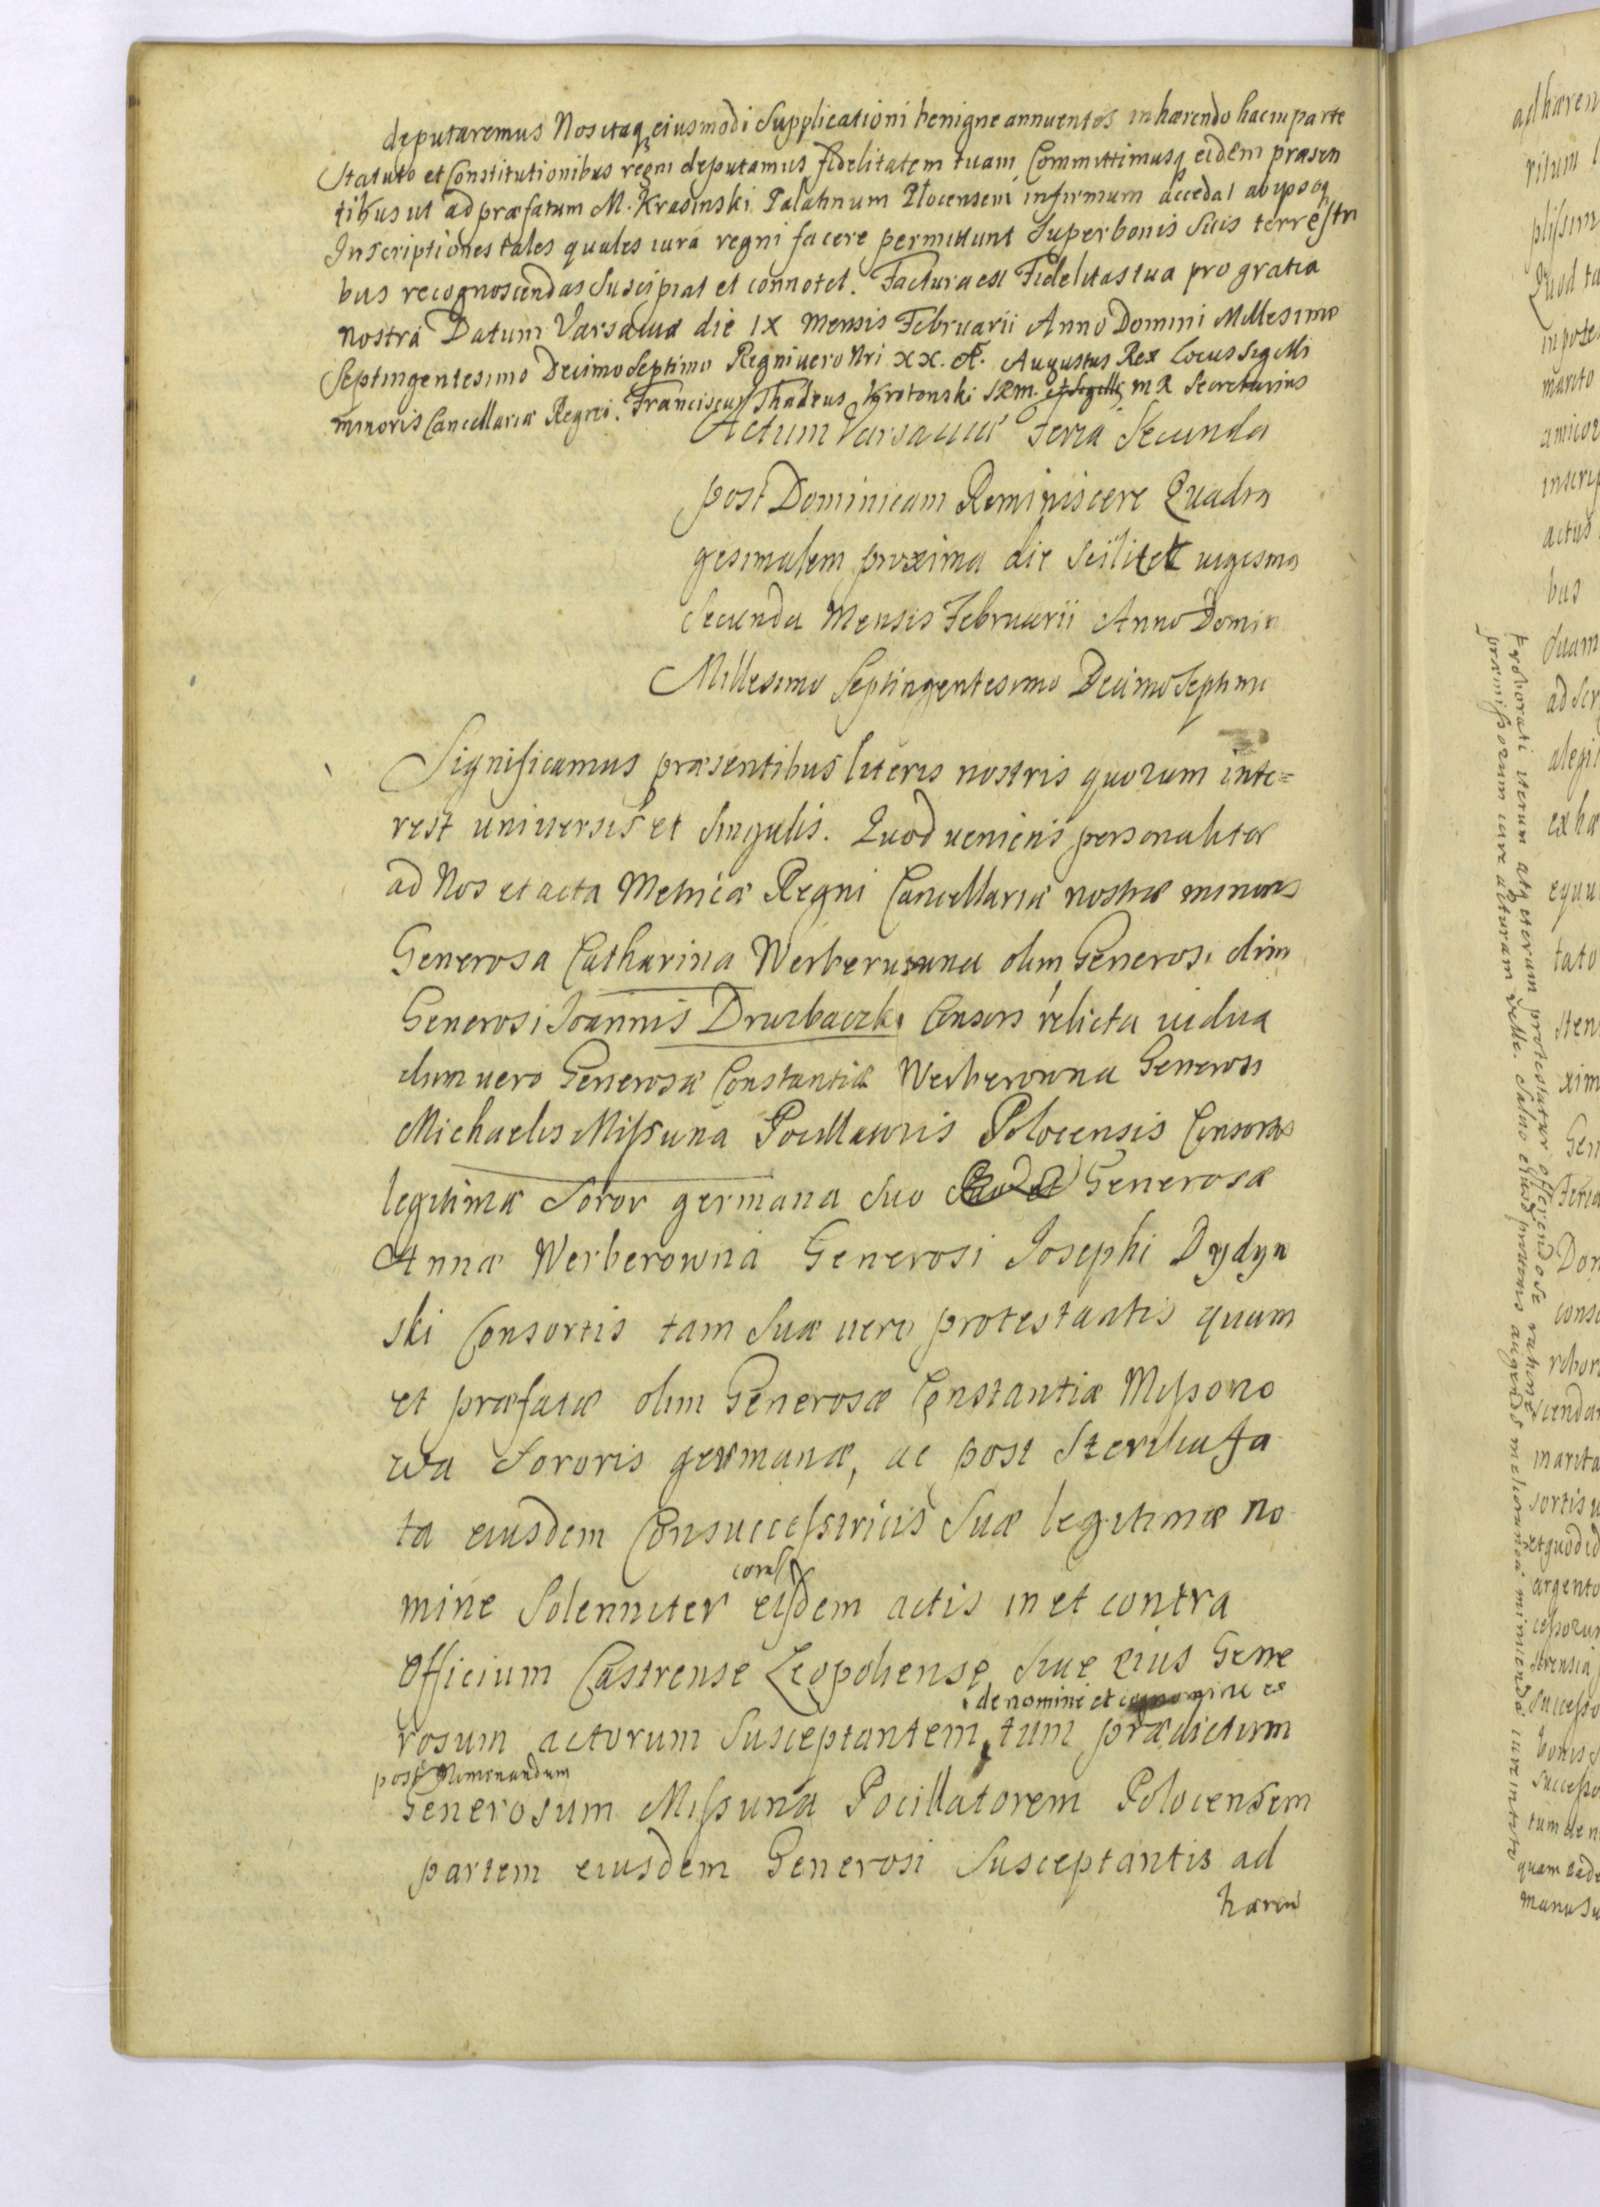 deputaremus Nos itaq eiusmodi Supplicationi benigne annuentes inhærendo hac in parte
Statuto et Constitutionibus regni deputamus fidelitatem tuam Committimusq eidem præsen
tibus ut ad præfatum M. Krasinski Palatinum Plocensem infirmum accedat ab ipsoq
Inscriptiones tales quales iura regni facere permittunt Super bonis Suis terrestri
bus recognoscendas Suscipiat et connotet. Factura est Fidelitas tua pro gratia
nostra Datum Varsaviæ die IX mensis Februarii Anno Domini Millesimo
Septingentesimo Decimo Septimo Regni vero Nri XX. A. Augustus Rex Locus Sigilli
minoris Cancellariæ Regni. Franciscus Thadeus Krotonski SRM. et Sigilli m R Secretarius
Actum Varsaviæ Feria Secunda
post Dominicam Reminiscere Quadra
gesimalem proxima die Scilicet vigesima
Secunda Mensis Februarii Anno Domin
Millesimo Septingentesimo Decimo Septimo
Significamus præsentibus literis nostris quorum inte=
rest universis et Singulis. Quod veniens personaliter
ad Nos et acta Metricæ Regni Cancellariæ nostræ minoris
Generosa Catharina Werberuwna olim Generosi olim
Generosi Joannis Druzbacki Consors relicta vidua
olim vero Generosæ Constantiæ Werberowna Generosi
Michaelis Missuna Pocillatoris Polocensis Consortis
legitimæ Soror germana Suo Generosæ
Annæ Werberowna Generosi Josephi Dydyn
ski Consortis tam Suæ vero protestantis quam
et præfatæ olim Generosæ Constantiæ Missono
wa Sororis germanæ, ac post Sterilia fa
ta eiusdem Consuccessiricis Suæ legitimæ no
mine Solenniter coral eisdem actis in et contra
Officium Castrense Leopoliense Sive eius Gene
rosum actorum Susceptantem de nomine et cognomine ex
post Nominandum tum prædictum
Generosum Missuna Pocillatorem Polocensem
partem eiusdem Generosi Susceptantis ad
hæren
adhæren
ritum
plissim
Quod ta
in pote
marito
amicor
inscrip
actus
bus
duam
ad Scr
alegi
ex hæ
equi
tato
sten
xim
Gen
Feria
Dom
conso
robor
scendar
marita
sortis u
et quod id
argento
cessorum
Successo
bonis
Successo
tum de n
quam eade
manu Su